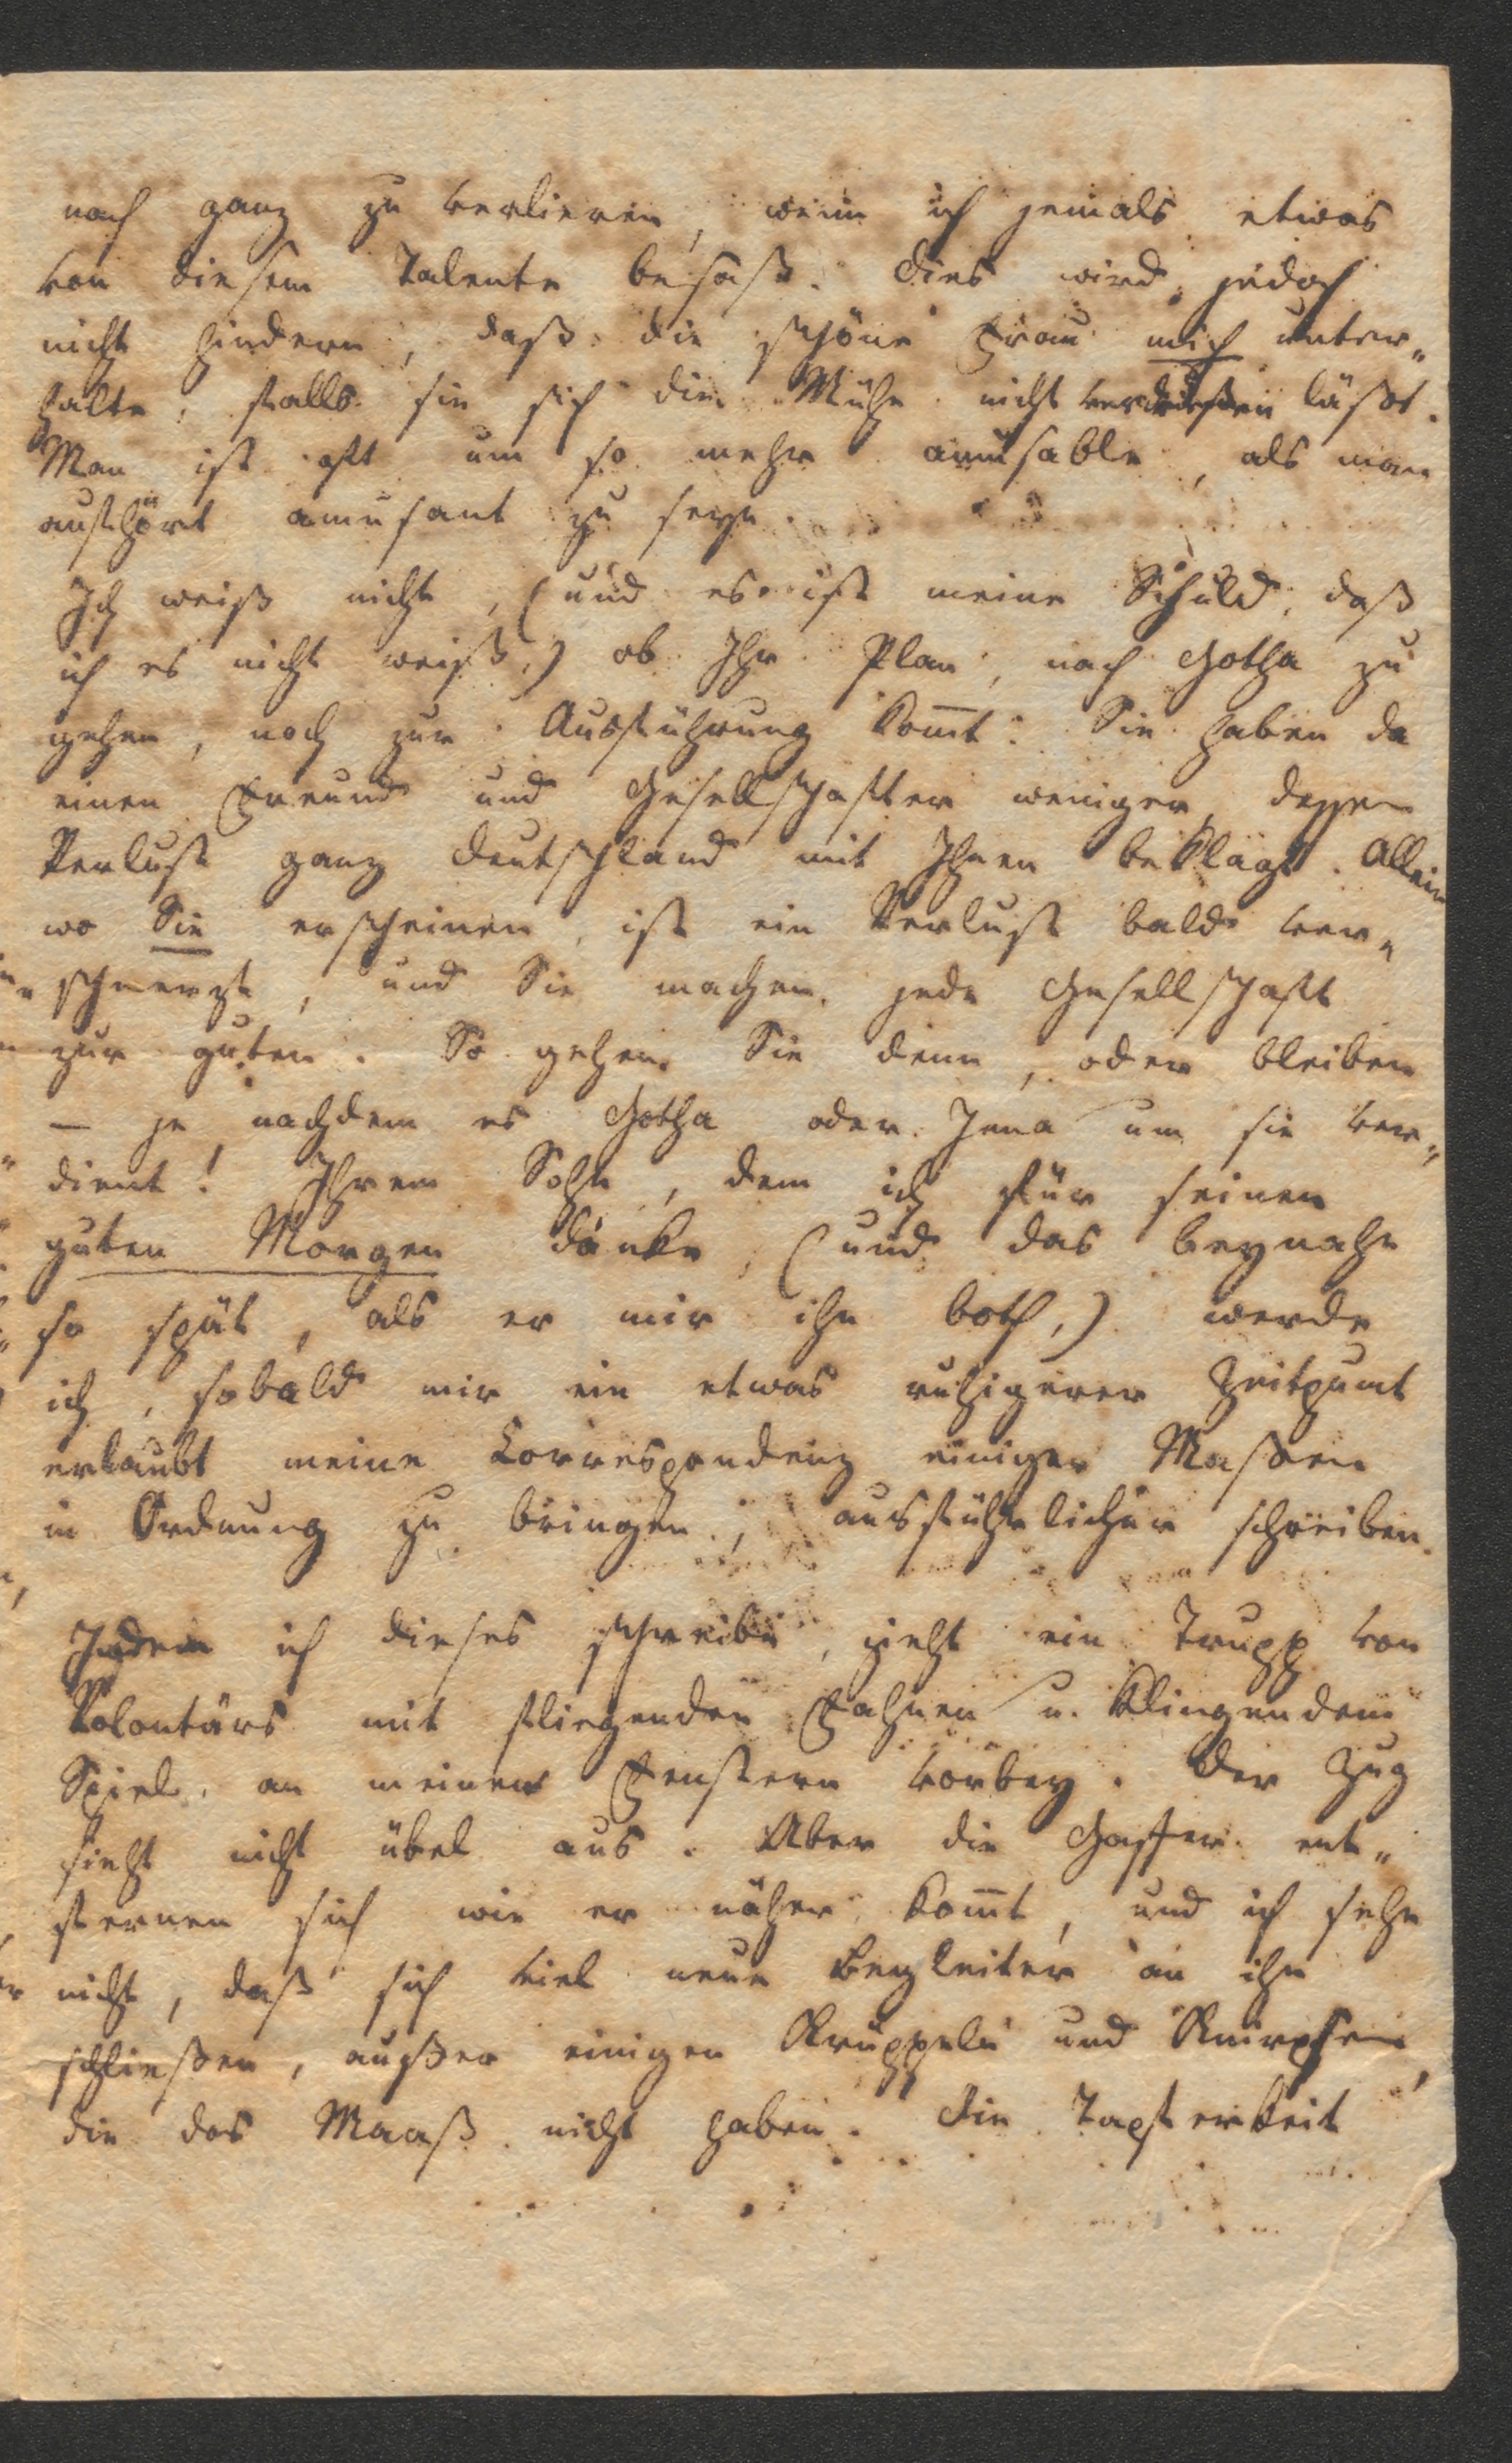 noch ganz zu verlieren, wenn ich jemals etwas
von diesem Talente besaß. Dies wird jedoch
nicht hindern, daß die schöne Frau mich unter„
halte, falls sie sich die Mühe nicht verdrießen läßt.
Man ist oft um so mehr amusable, als man
aufhört amusant zu seyn.
Ich weiß nicht, (und es ist meine Schuld, daß
ich es nicht weiß,) ob Ihr Plan, nach Gotha zu
gehen, noch zur Ausführung kom̅t. Sie haben da
einen Freund und Gesellschafter weniger, dessen
Verlust ganz Deutschland mit Ihnen beklagt. Allein
wo Sie erscheinen, ist ein Verlust bald ver„
schmerzt, und Sie machen jede Gesellschaft
zur guten. So gehen Sie denn, oder bleiben
– je nachdem es Gotha oder Jena um sie ver„
dient! Ihrem Sohn, dem ich für seinen
guten Morgen danke, (und das beynahe
so spät, als er mir ihn both,) werde
ich, sobald mir ein etwas ruhigerer Zeitpunct
erlaubt meine Correspondenz einiger Maßen
in Ordnung zu bringen, ausführlicher schreiben.
Indem ich dieses schreibe, zieht ein Trupp von
Volontärs mit fliegenden Fahnen u. klingendem
Spiel an meinen Fenstern vorbey. Der Zug
sieht nicht übel aus. Aber die Gaffer ent„
fernen sich wie er näher kom̅t, und ich sehe
nicht, daß sich viel neue Begleiter an ihn
schließen, außer einigen Krüppeln und Knirpsen,
die das Maaß nicht haben. Die Tapferkeit